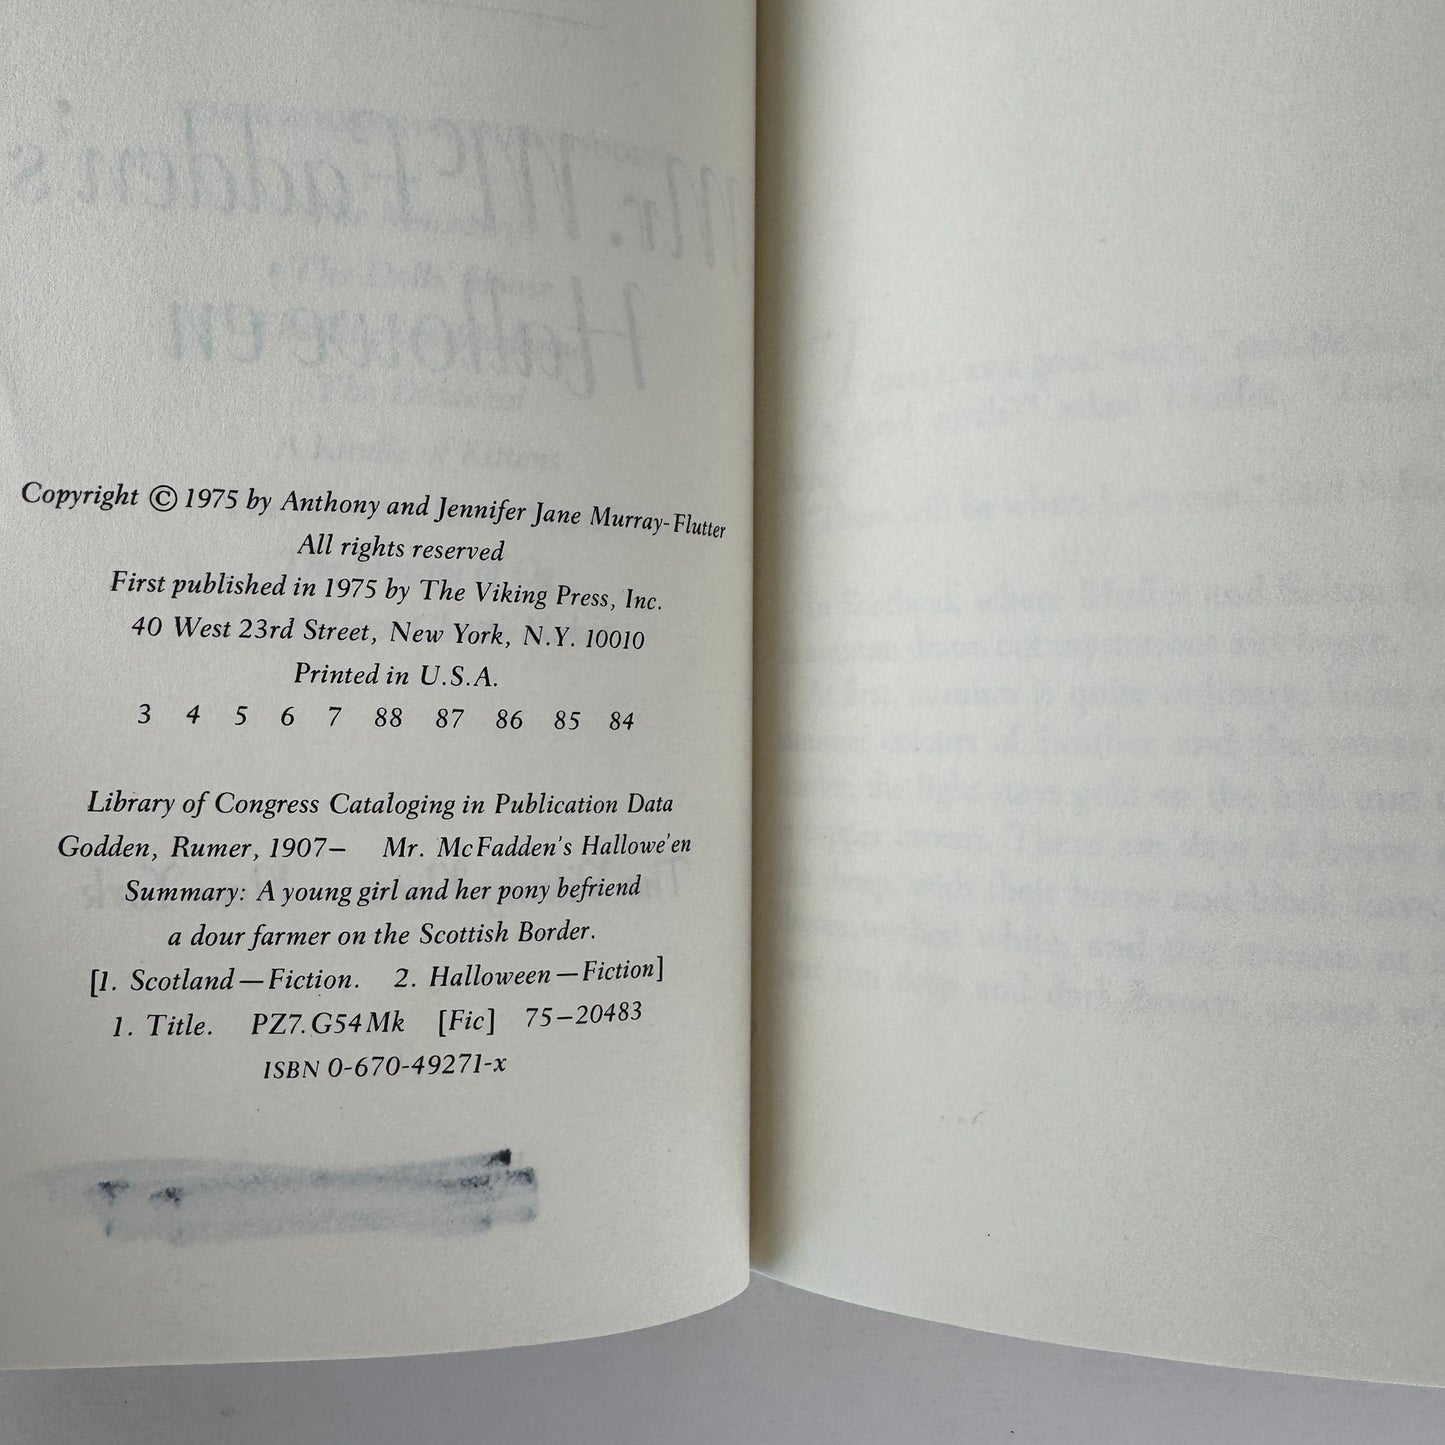 Copyright © 1975 by Anthony and Jennifer Jane Murray-Flutter
All rights reserved
First published in 1975 by The Viking Press, Inc.
40 West 23rd Street, New York, N.Y. 10010
Printed in U.S.A.
3 4 5 6 7 88 87 86 85 84
Library of Congress Cataloging in Publication Data
Godden, Rumer, 1907– Mr. McFadden's Hallowe'en
Summary: A young girl and her pony befriend
a dour farmer on the Scottish Border.
[1. Scotland—Fiction. 2. Halloween—Fiction]
1. Title. PZ7.G54Mk [Fic] 75–20483
ISBN 0-670-49271-x